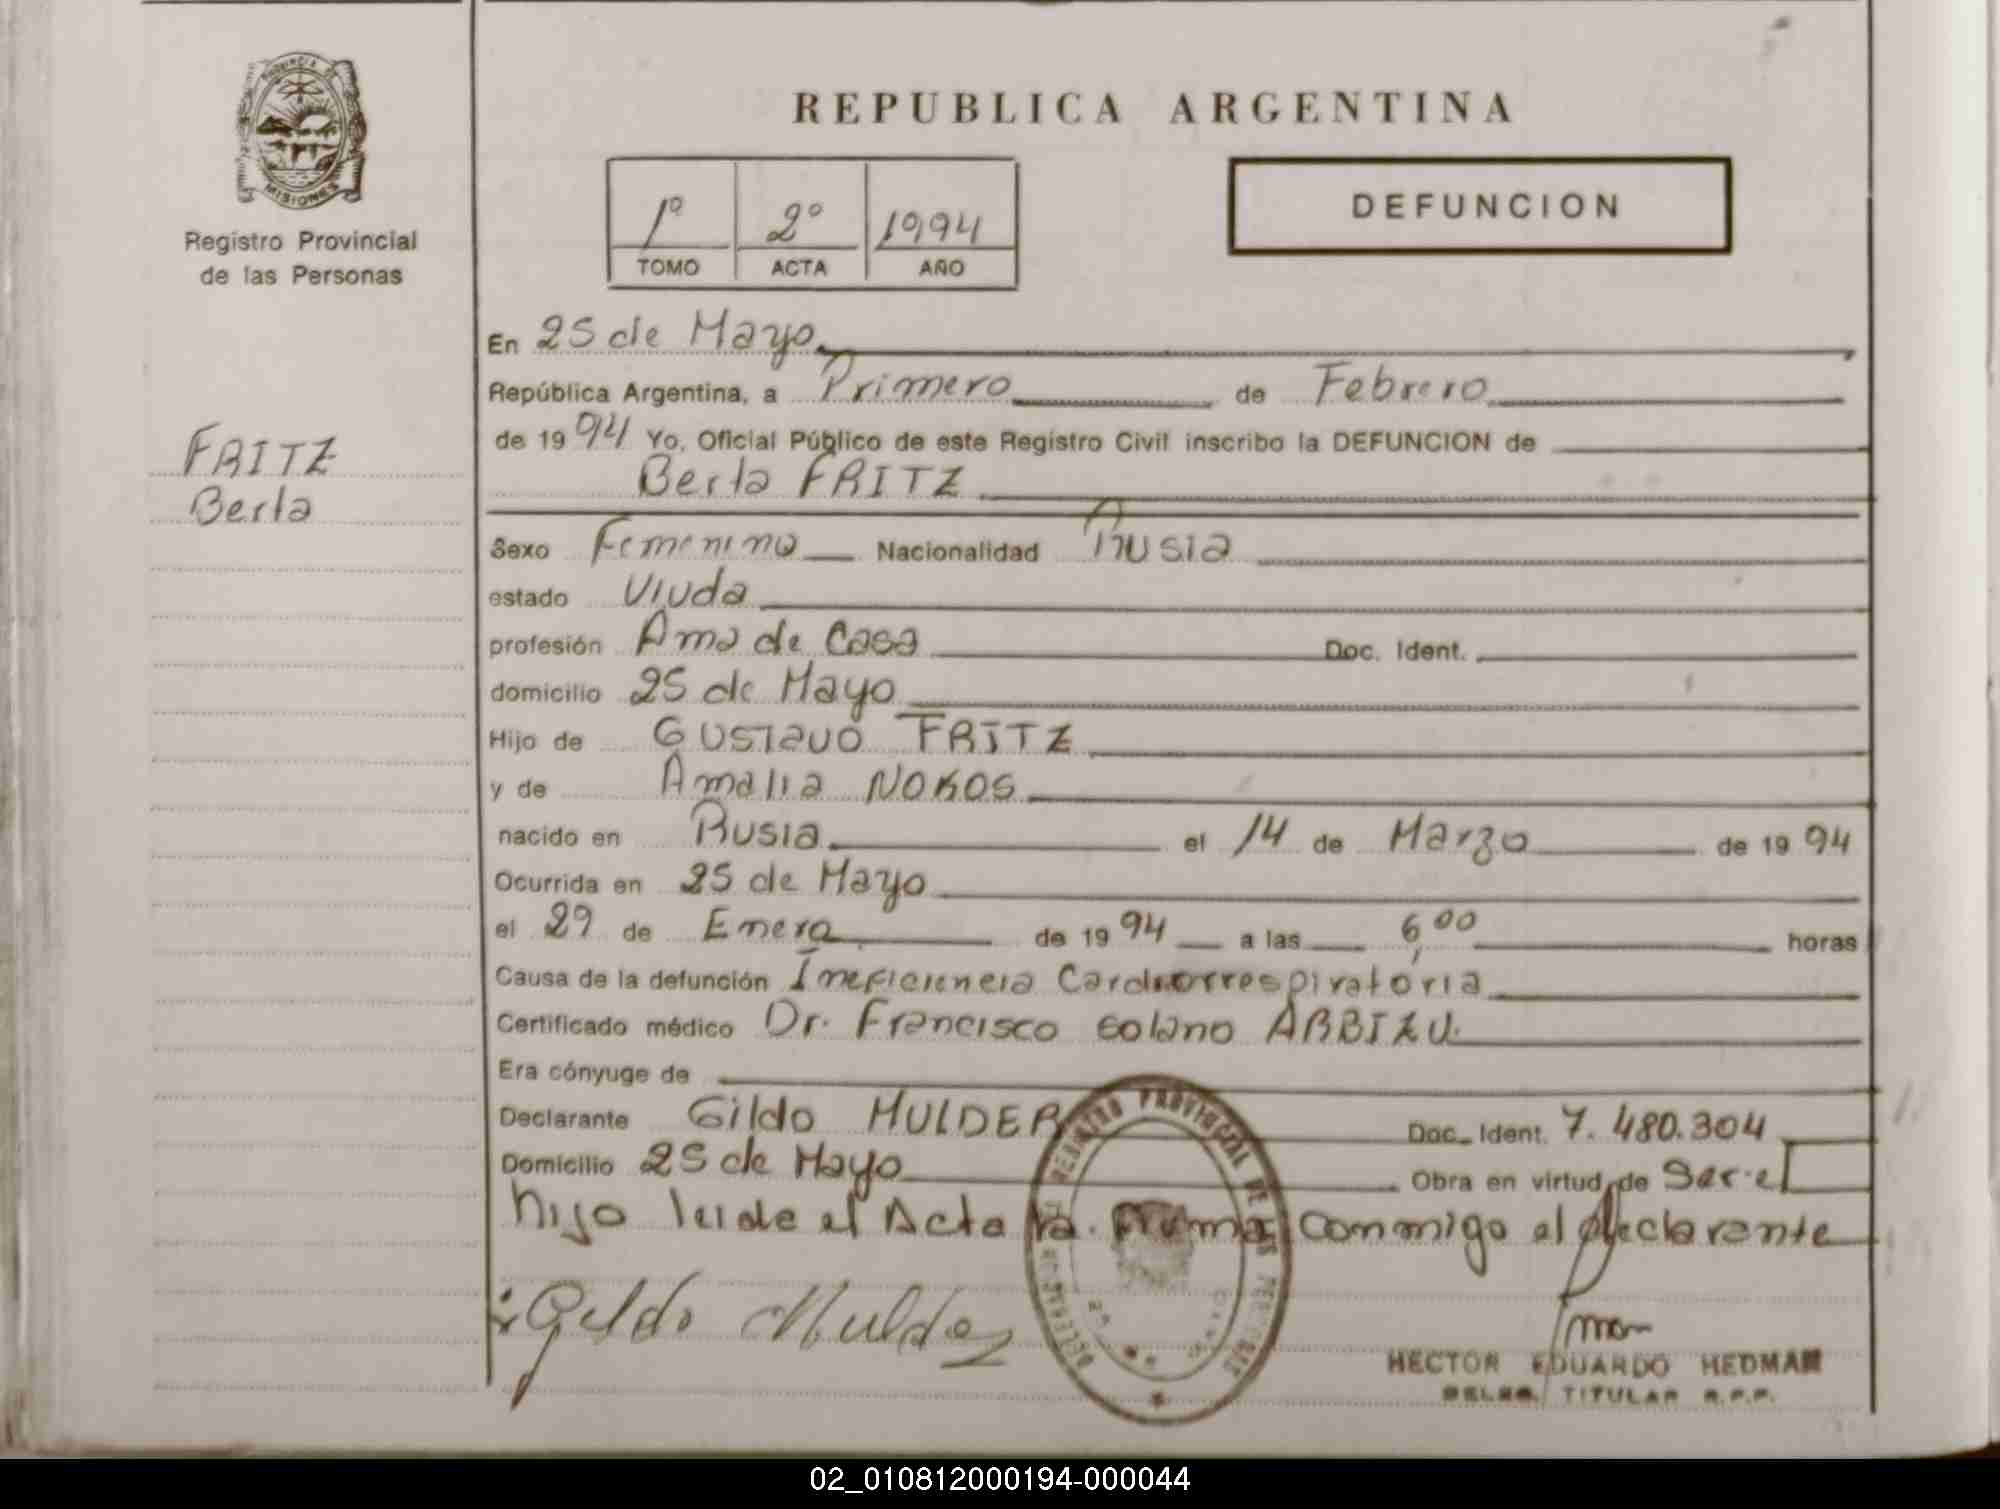 PROVINCIA DE
MISIONES
Registro Provincial
de las Personas
FRITZ
Berta
REPUBLICA ARGENTINA
1º 2º 1994
TOMO ACTA AÑO
DEFUNCION
En 25 de Mayo
República Argentina, a Primero de Febrero
de 1994 Yo, Oficial Público de este Registro Civil inscribo la DEFUNCION de
Berta FRITZ
Sexo Femenino Nacionalidad Rusia
estado Viuda
profesión Ama de Casa Doc. Ident.
domicilio 25 de Mayo
Hijo de Gustavo FRITZ
y de Amalia NOKOS
nacido en Rusia el 14 de Marzo de 1994
Ocurrida en 25 de Mayo
el 29 de Enero de 1994 a las 6,00 horas
Causa de la defunción Ineficiencia Cardiorrespiratoria
Certificado médico Dr. Francisco Solano ARBIZU.
Era cónyuge de
Declarante Gildo MULDER Doc. Ident. 7.480.304
Domicilio 25 de Mayo Obra en virtud de Ser el
hijo leide el Acta la firma conmigo el declarante
Gildo Mulder
REGISTRO PROVINCIAL DE LAS PERSONAS
HECTOR EDUARDO HEDMAN
DELEG. TITULAR R.P.P.
02_010812000194-000044